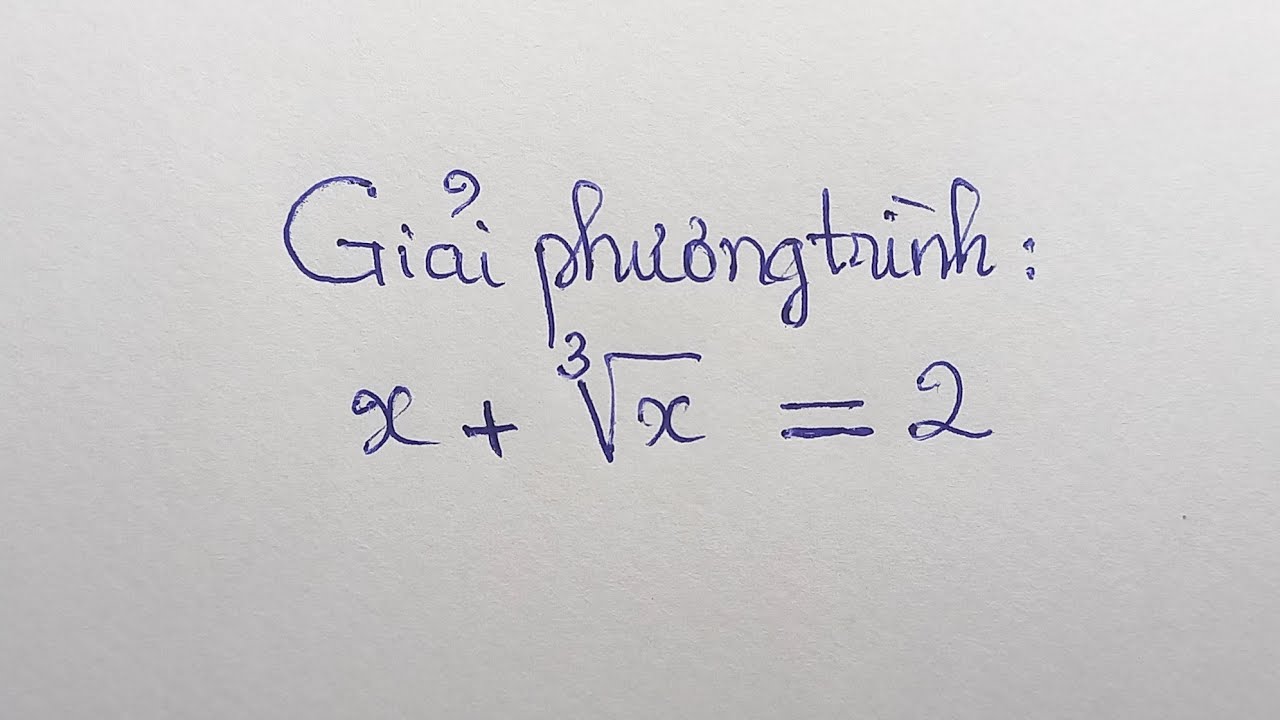 Giải phương trình:
x + ∛x = 2